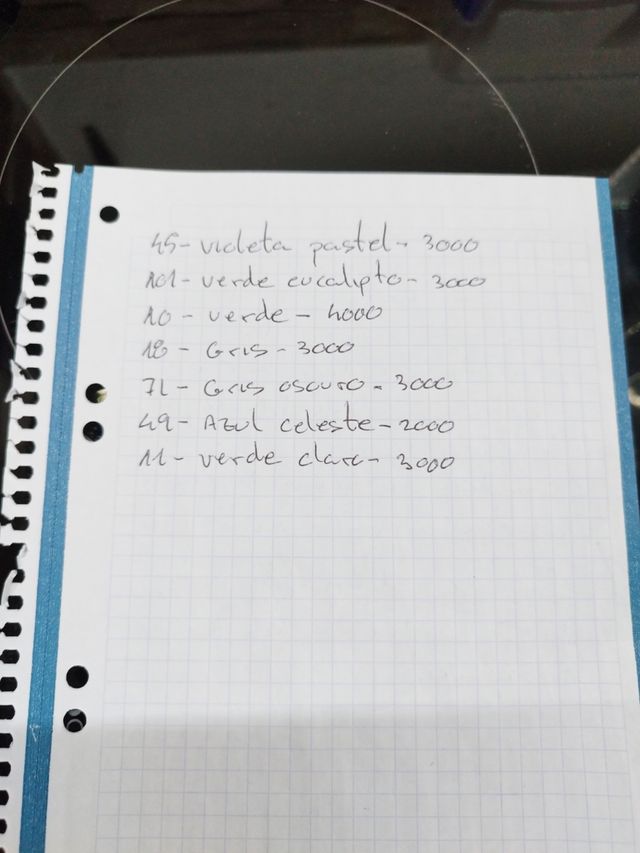 45- violeta pastel- 3000
101- verde eucalipto- 3000
10- verde- 4000
18- Gris- 3000
71- Gris oscuro- 3000
49- Azul celeste- 2000
11- verde claro- 3000